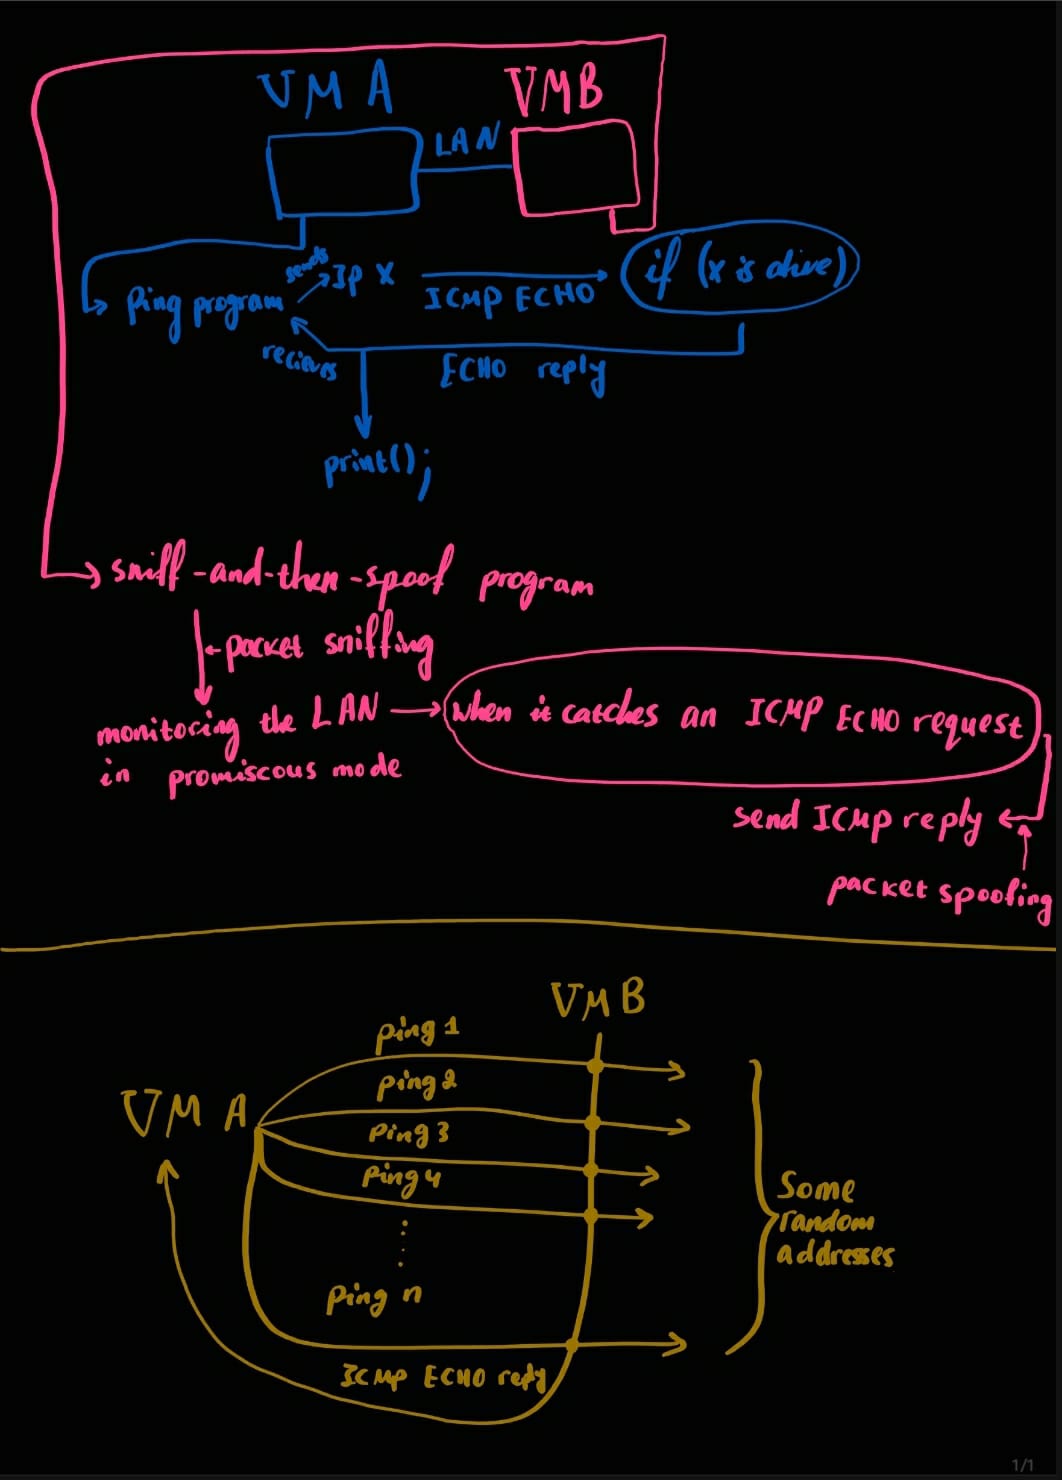 VM A
VMB
LAN
Ping program
sends
Ip X
ICMP ECHO
if (x is alive)
recieves
ECHO reply
print();
sniff-and-then-spoof program
packet sniffing
monitoring the LAN
in promiscous mode
when it catches an ICMP ECHO request
send ICMP reply
packet spoofing
VMB
VM A
Ping 1
Ping 2
Ping 3
Ping 4
Ping n
ICMP ECHO reply
Some
random
addresses
1/1